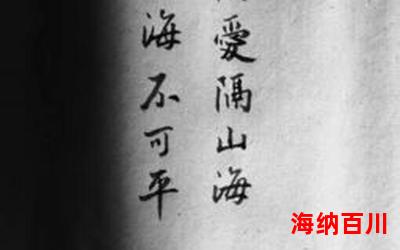 愛隔山海
海不可平
海纳百川